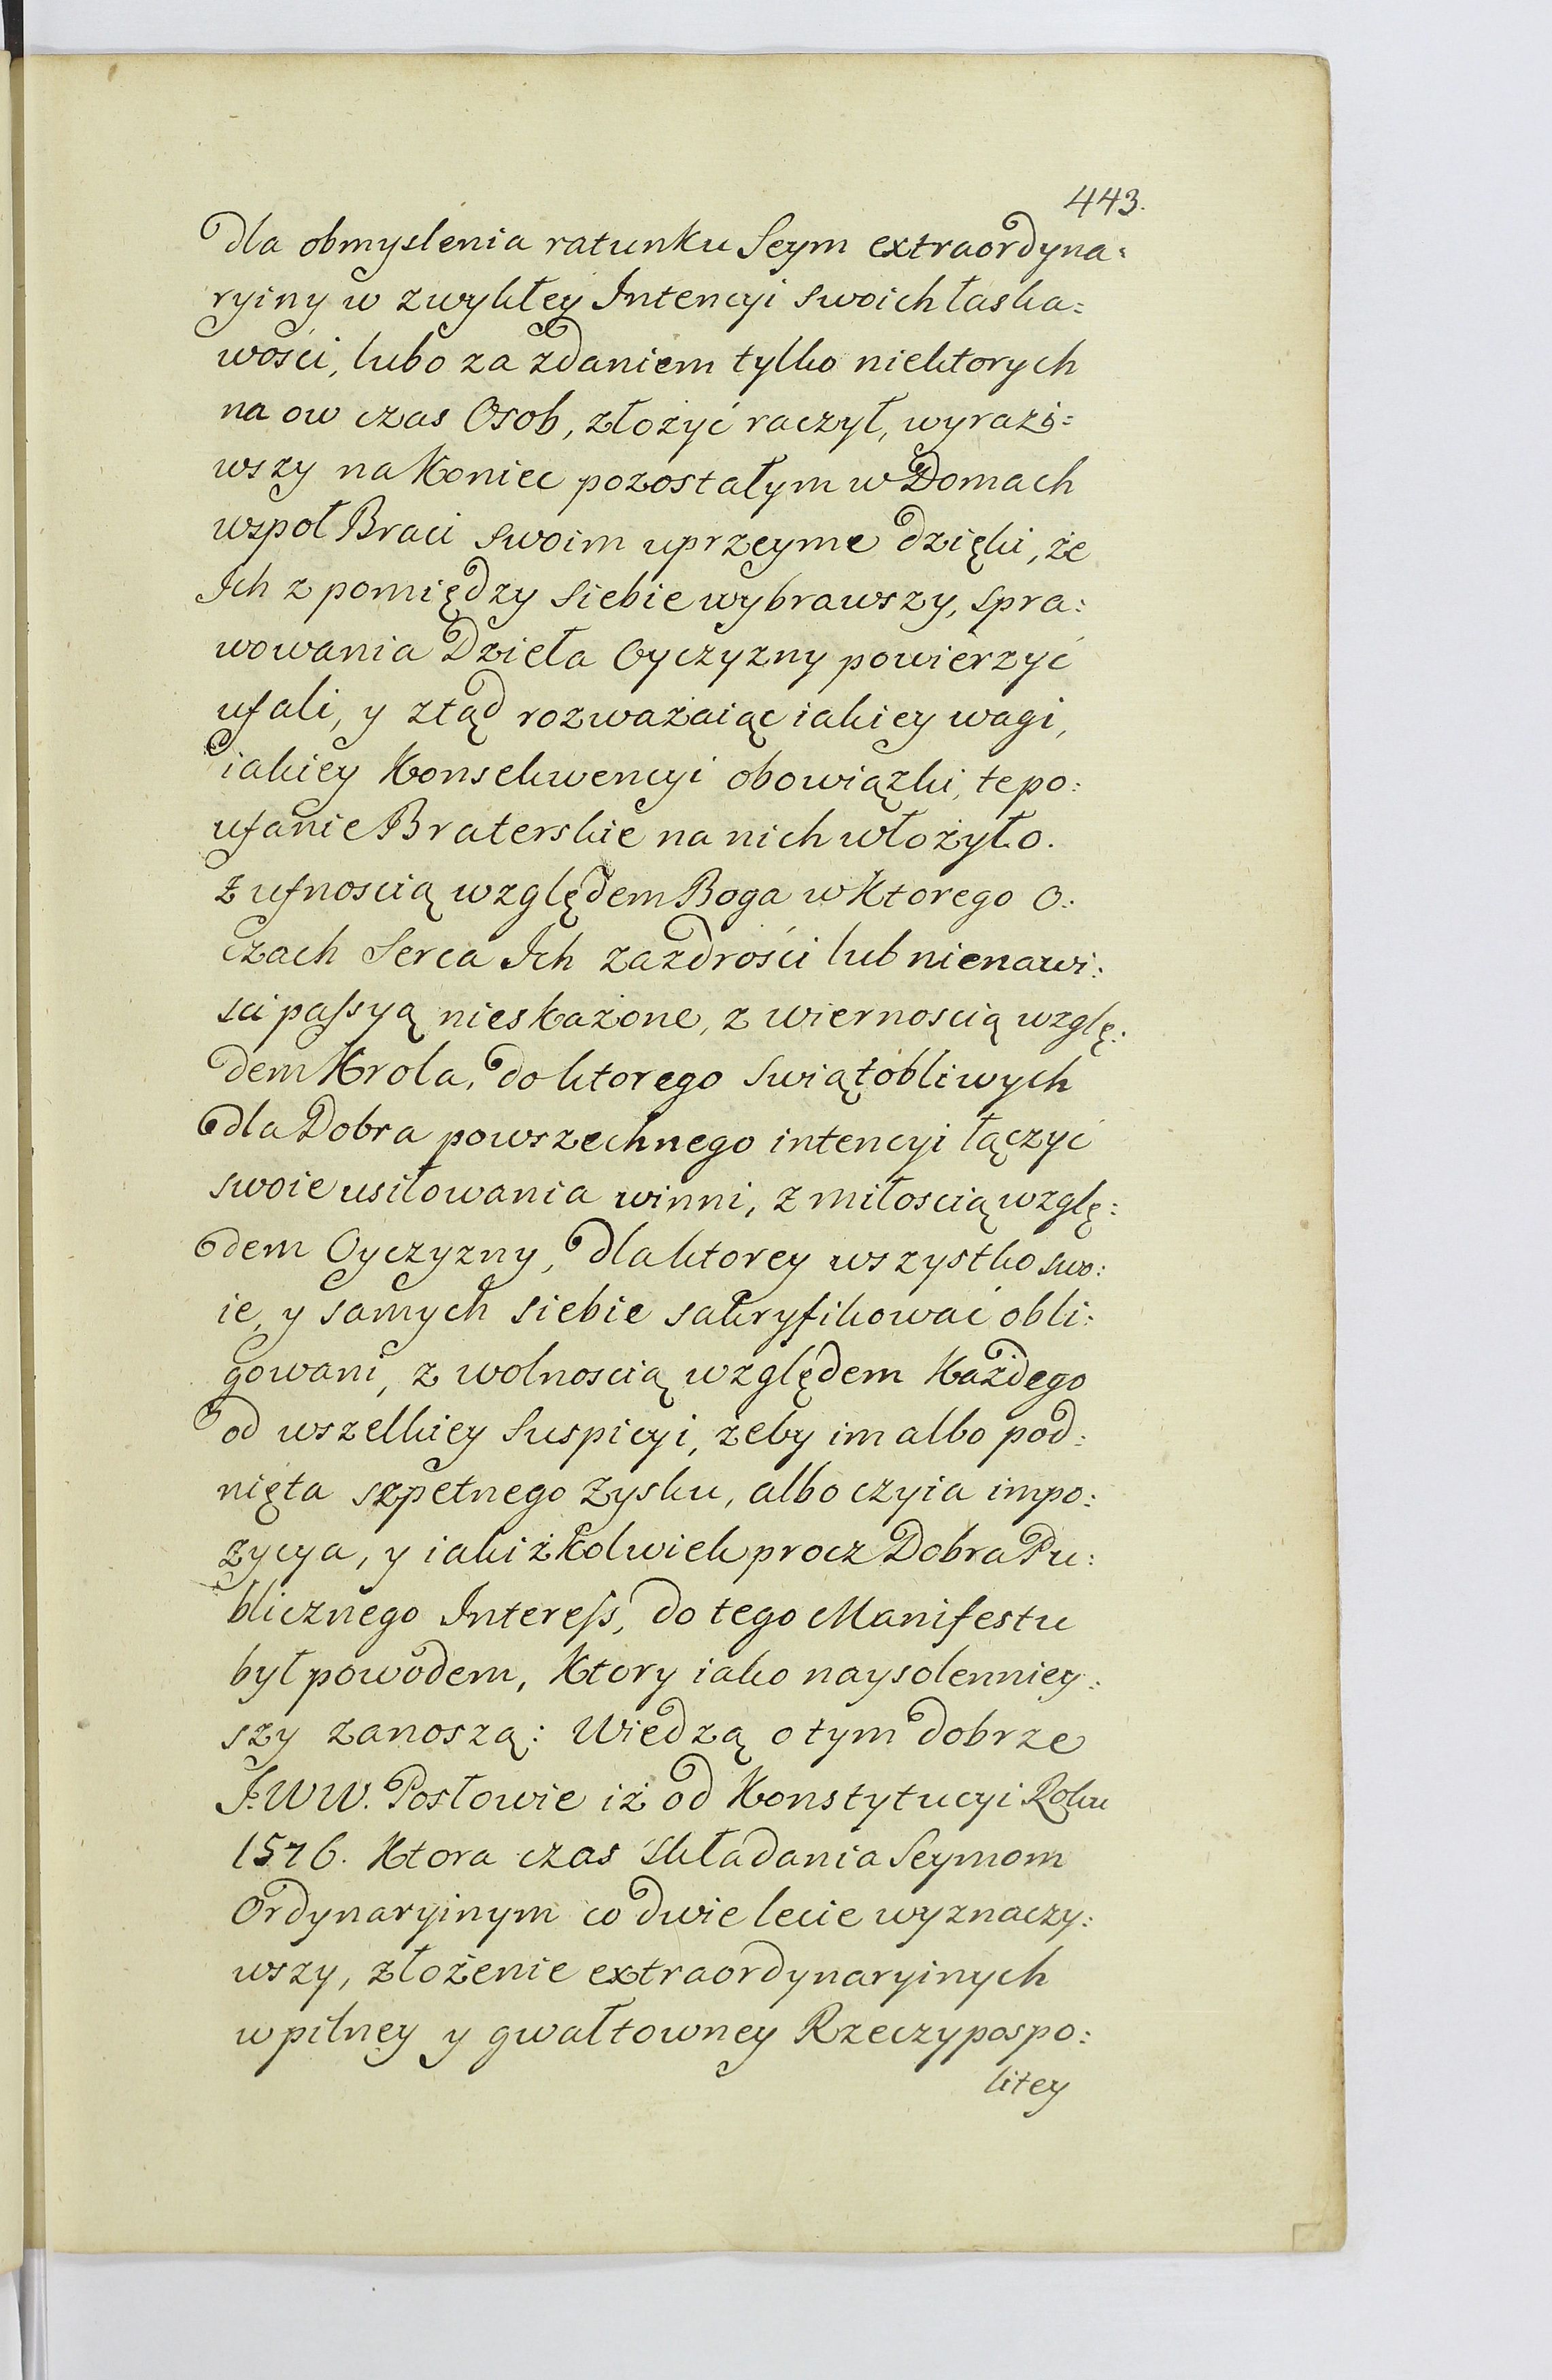 443.
dla obmyslenia ratunku Seym extraordyna=
ryiny w zwykłey Intencyi swoich łaska=
wości, lubo za zdaniem tylko niektorych
na ow czas Osob, złożyć raczył, wyrazi=
wszy na Koniec pozostałym w Domach
wspoł Braci swoim uprzeyme dzięki, że
Ich z pomiędzy siebie wybrawszy, spra=
wowania Dzieła Oyczyzny powierzyć
ufali, y ztąd rozważaiąc iakiey wagi,
iakiey Konsekwencyi obowiązki, te po=
ufanie Braterskie na nich włożyło.
Z ufnoscią względem Boga w Ktorego O=
czach Serca Ich zazdrości lub nienawi=
sci passyą nieskażone, z wiernoscią wzglę=
dem Krola, do ktorego swiątobliwych
dla Dobra powszechnego intencyi łączyć
swoie usiłowania winni, z miłoscią wzglę=
dem Oyczyzny, dla ktorey wszystko swo=
ie, y samych siebie sakryfikować obli=
gowani, z wolnoscią względem Każdego
od wszelkiey Suspicyi, żeby im albo pod=
nięta szpetnego zysku, albo czyia impo=
zycya, y iakiżkolwiek procz Dobra Pu=
blicznego Interess, do tego Manifestu
był powodem, Ktory iako naysolenniey=
szy zanoszą: Wiedzą o tym dobrze
J.WW. Posłowie iż od Konstytucyi Roku
1576. Ktora czas składania Seymom
Ordynaryinym co dwie lecie wyznaczy=
wszy, złożenie extraordynaryinych
w pilney y gwałtowney Rzeczypospo=
litey